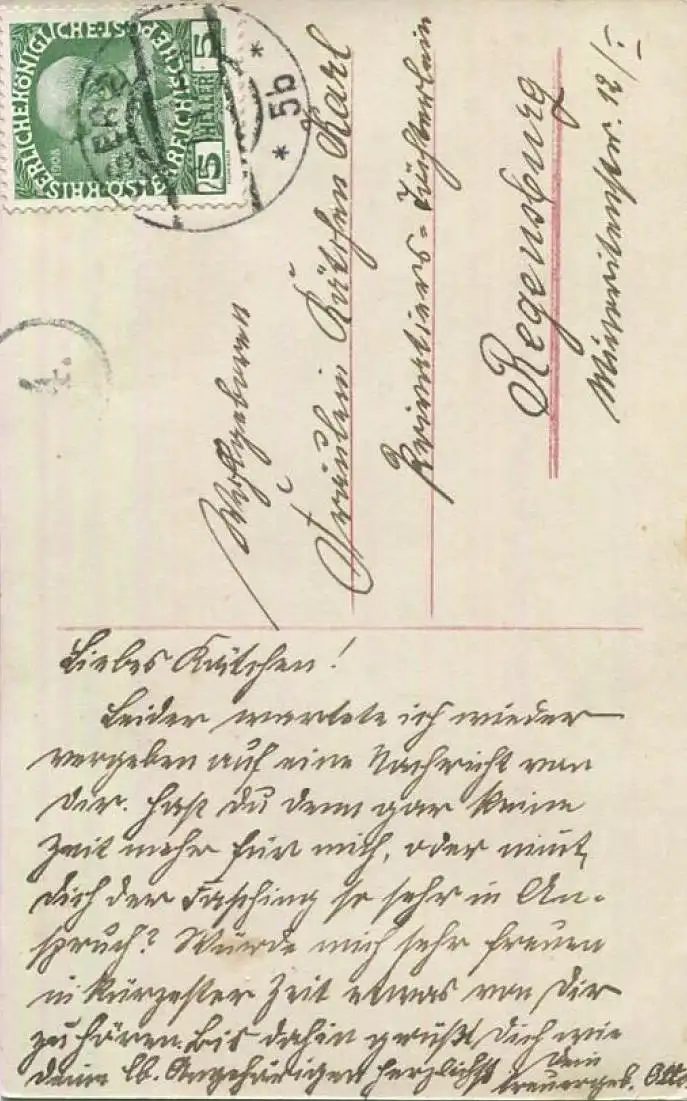 KAISERLICHE KÖNIGLICHE ÖSTERREICHISCHE POST
5 HELLER 5
1908
* 5b *
Wohlgeboren
Fräulein Kätchen Karl
Privatiers-Töchterlein
Regensburg
Minoritenstr. 12/I
Liebes Kätchen!
Leider wartete ich wieder
vergeben auf eine Nachricht von
Dir. Hast Du denn gar keine
Zeit mehr für mich, oder nimt
Dich der Fasching so sehr in An-
spruch? Würde mich sehr freuen
in kürzester Zeit etwas von Dir
zu hören. Bis dahin grüßt Dich wie
Deine lb. Angehörigen herzlichst Dein
treuergeb. Otto